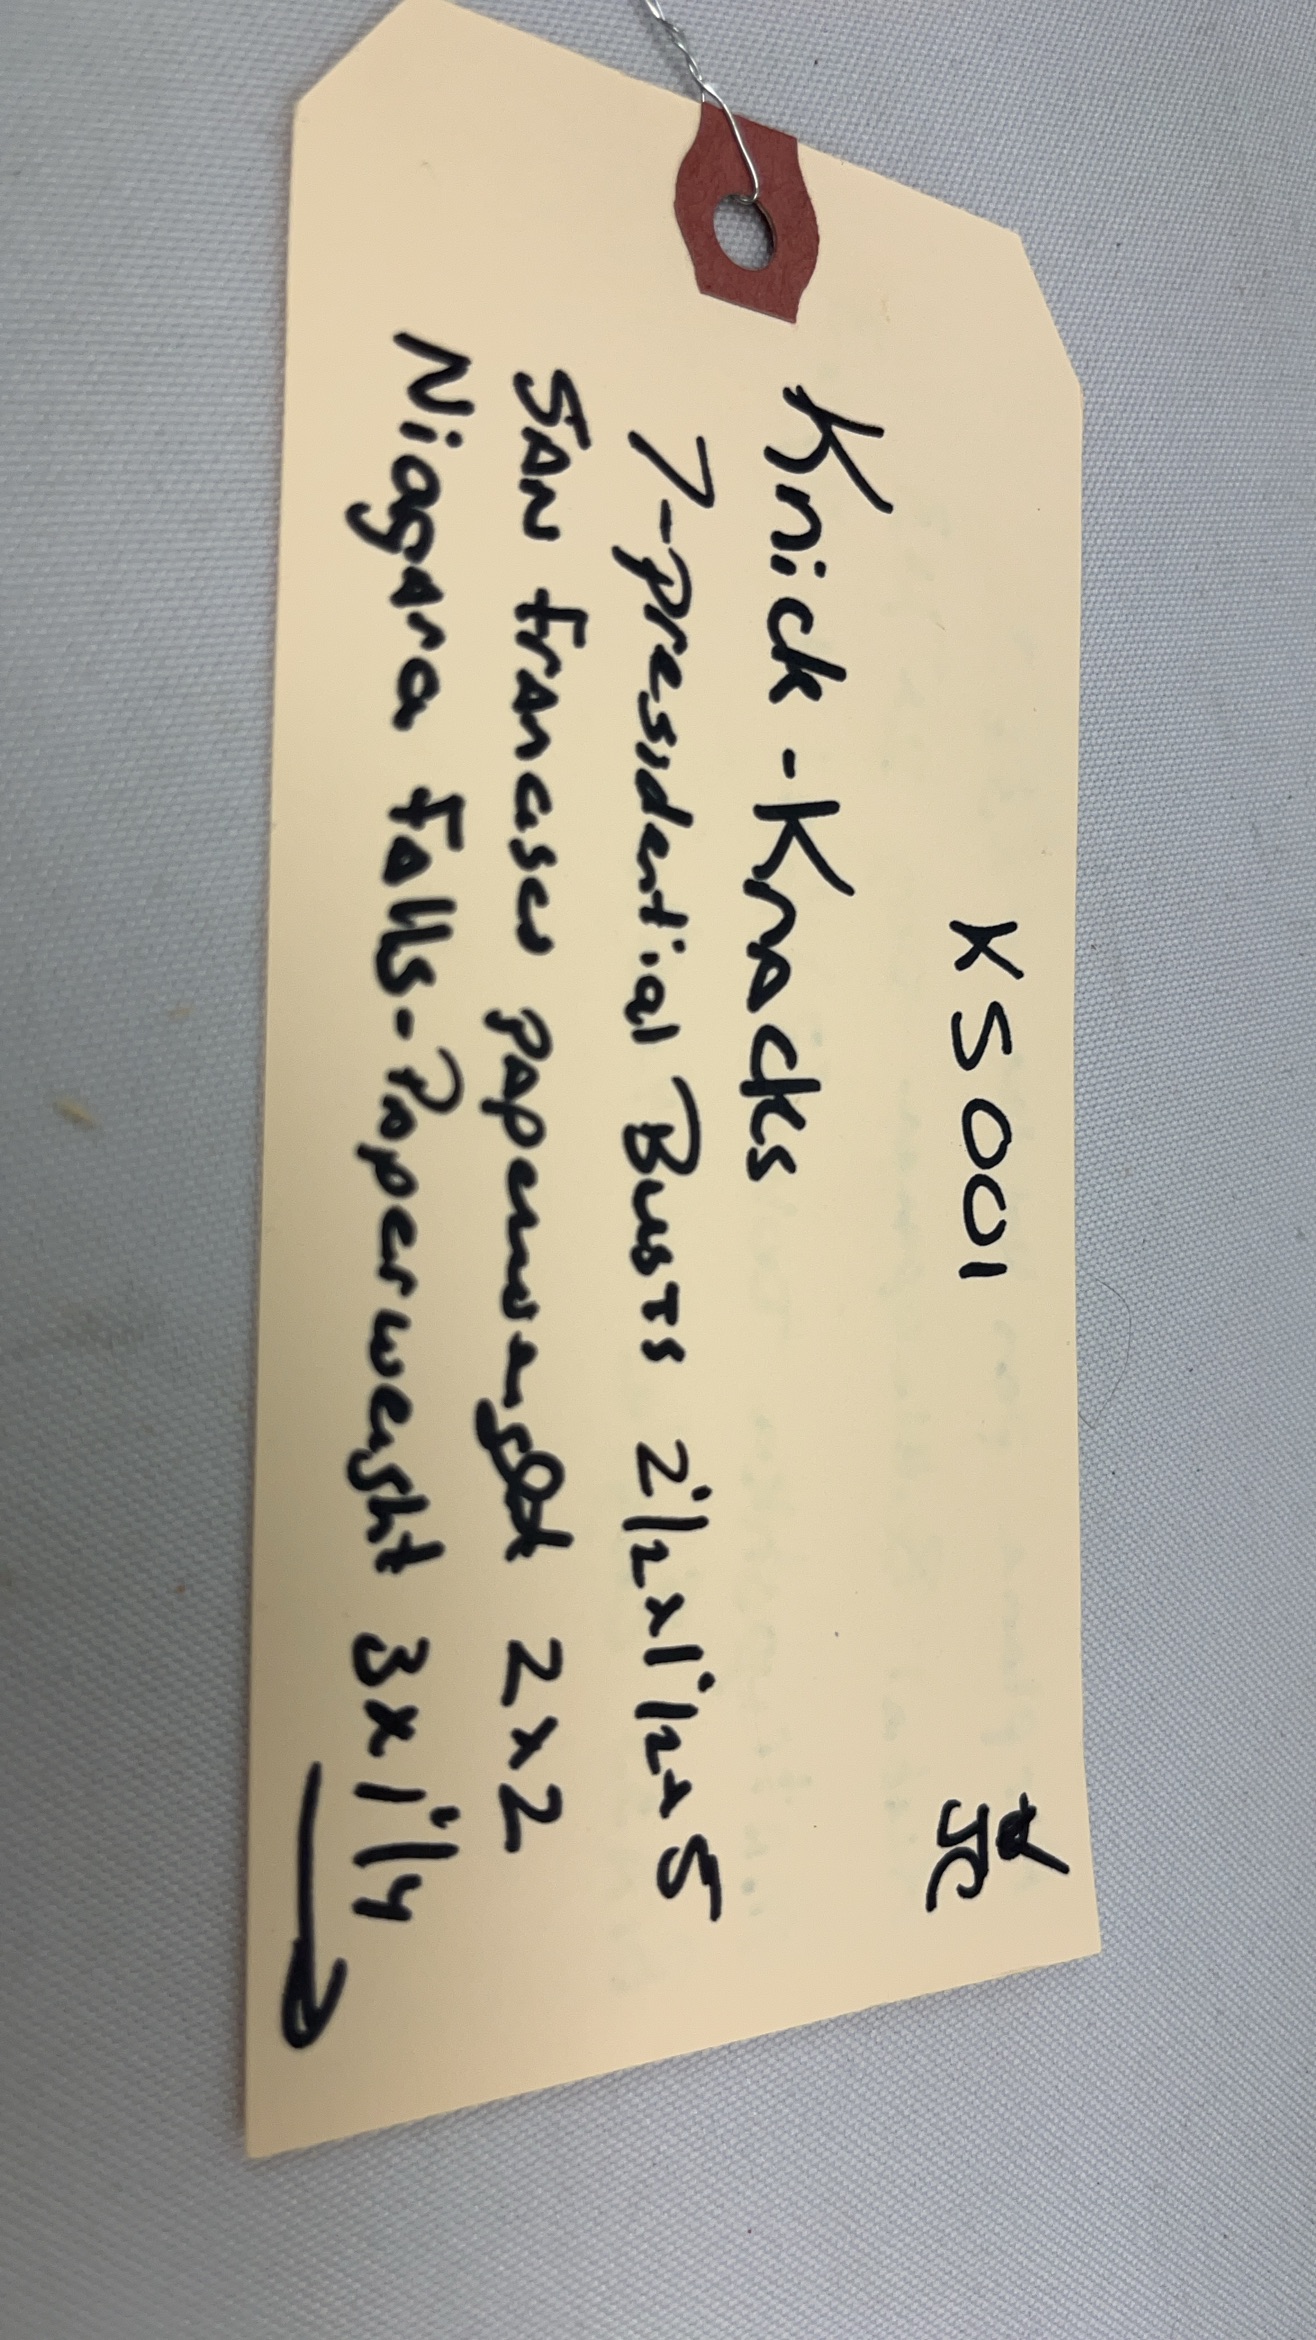 KS001
JC
Knick-Knacks
7-Presidential Busts 2 1/2 x 1 1/2 x 5
SAN Francisco paperweight 2x2
Niagara Falls-Paperweight 3x1 1/4